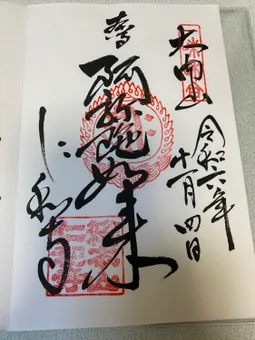 大内山
令和六年
十一月四日
奉拝
阿弥陀如来
仁和寺